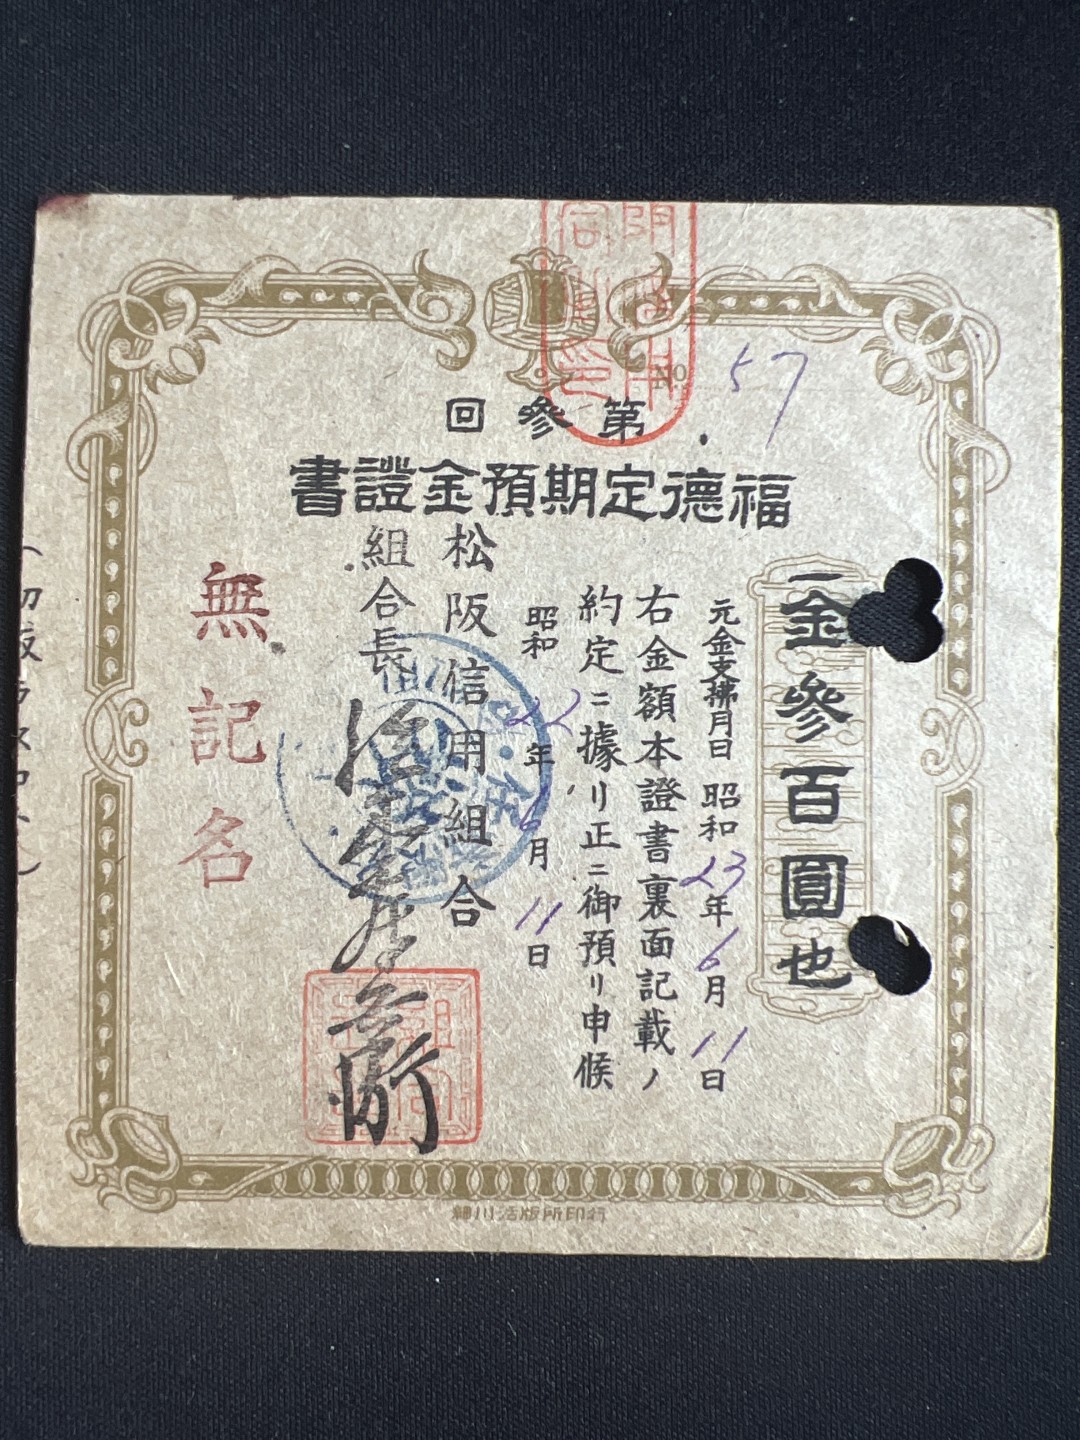 No. 57
第參回
福德定期預金證書
一金參百圓也
元金支拂月日 昭和23年6月11日
右金額本證書裏面記載ノ
約定ニ據リ正ニ御預リ申候
昭和22年6月11日
松阪信用組合
組合長
無記名
細川活版所印行